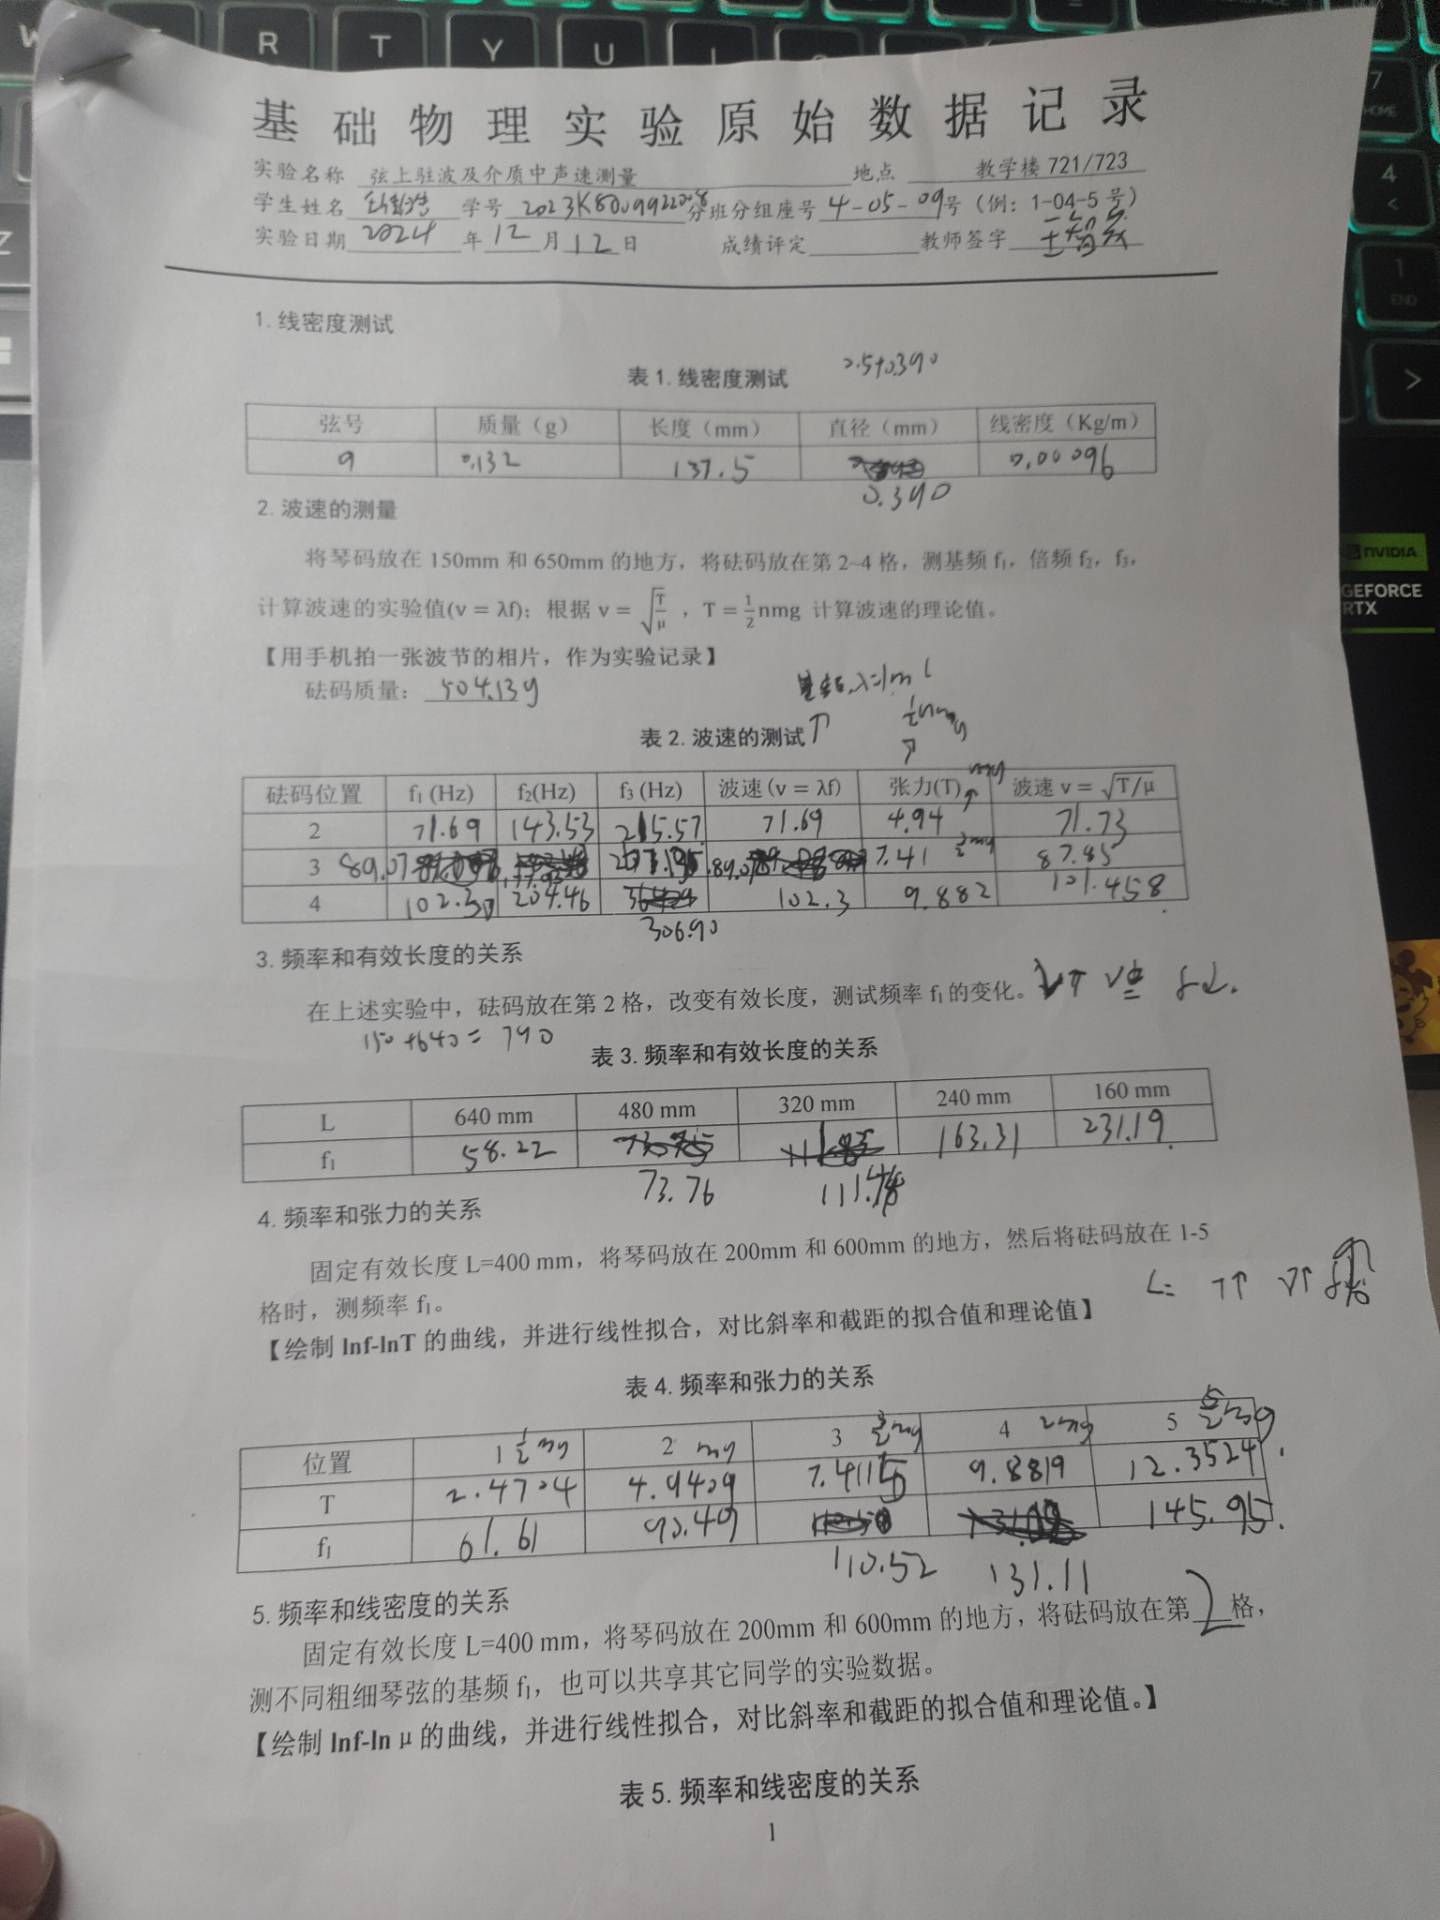 R T Y U
7
HOME
4
<
1
END
>
nVIDIA
GEFORCE
RTX
基础物理实验原始数据记录
实验名称 弦上驻波及介质中声速测量 地点 教学楼 721/723
学生姓名 学号 分班分组座号 4-05-09 号（例：1-04-5 号）
实验日期 2024 年 12 月 12 日 成绩评定 教师签字
1. 线密度测试
表 1. 线密度测试
弦号 质量（g） 长度（mm） 直径（mm） 线密度（Kg/m）
9 0.132 137.5 0.00096
0.390
2. 波速的测量
将琴码放在 150mm 和 650mm 的地方，将砝码放在第 2~4 格，测基频 f₁，倍频 f₂，f₃，
计算波速的实验值(v = λf)；根据 v = √(T/μ) ，T = ½nmg 计算波速的理论值。
【用手机拍一张波节的相片，作为实验记录】
砝码质量：504.13g
½nmg
表 2. 波速的测试 ↑
mg
砝码位置 f₁ (Hz) f₂(Hz) f₃ (Hz) 波速 (v = λf) 张力(T) 波速 v = √T/μ
2 71.69 143.53 215.57 71.69 4.94 71.73
3 89.07 7.41 3/2mg 87.85
4 102.30 204.46 102.3 9.882 101.458
306.90
3. 频率和有效长度的关系
在上述实验中，砝码放在第 2 格，改变有效长度，测试频率 f₁ 的变化。
150+640= 790
表 3. 频率和有效长度的关系
L 640 mm 480 mm 320 mm 240 mm 160 mm
f₁ 58.22 163.31 231.19
73.76
4. 频率和张力的关系
固定有效长度 L=400 mm，将琴码放在 200mm 和 600mm 的地方，然后将砝码放在 1-5
格时，测频率 f₁。
L= T↑ V↑
【绘制 lnf-lnT 的曲线，并进行线性拟合，对比斜率和截距的拟合值和理论值】
表 4. 频率和张力的关系
位置 1 ½mg 2 mg 3 3/2mg 4 2mg 5 5/2mg
T 2.4704 4.9409 9.8819 12.3524
f₁ 61.61 90.49 145.95
110.52 131.11
5. 频率和线密度的关系
固定有效长度 L=400 mm，将琴码放在 200mm 和 600mm 的地方，将砝码放在第 2 格，
测不同粗细琴弦的基频 f₁，也可以共享其它同学的实验数据。
【绘制 lnf-ln μ 的曲线，并进行线性拟合，对比斜率和截距的拟合值和理论值。】
表 5. 频率和线密度的关系
1